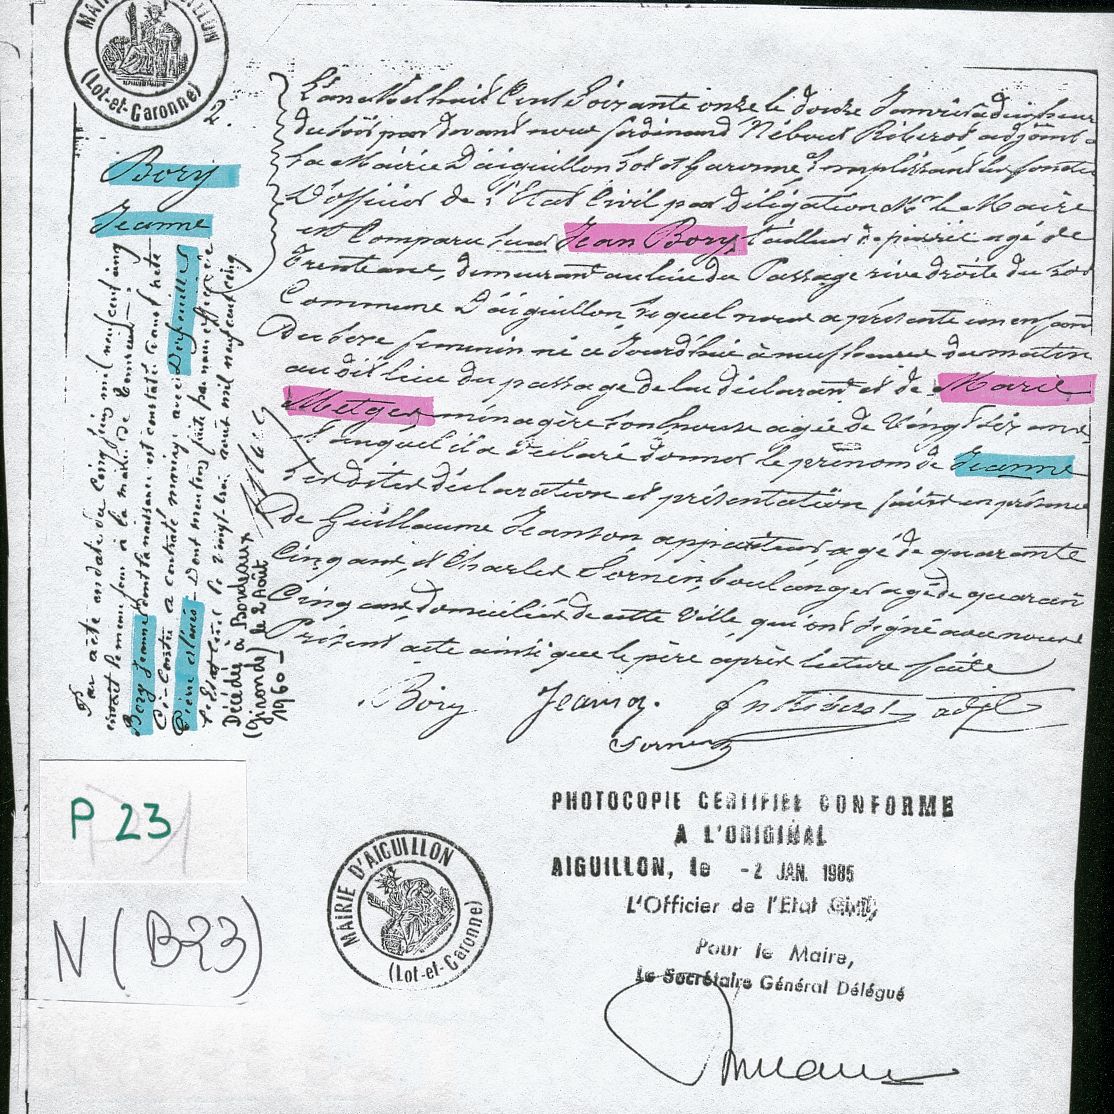 MAIRIE D'AIGUILLON
(Lot-et-Garonne)
2.
Bory
Jeanne
L'an Mil huit Cent Soixante onze le douze Janvier à dix heures
du soir par devant nous Ferdinand adjoint
La Mairie D'aiguillon Lot et Garonne remplissant les fonctions
D'officier de l'Etat Civil par délégation Mr le Maire
est Comparu Jean Bory tailleur de pierre agé de
Trente ans, demeurant au lieu du Passage rive droite du Lot
Commune D'aiguillon lequel nous a présenté un enfant
Du sexe feminin né ce Jourdhui à neuf heures du matin
au dit lieu du passage de lui déclarant et de Marie
Metges ménagère son épouse agée de Vingt six ans
et auquel il a déclaré donner le prénom de Jeanne
Les dites déclaration et présentation faites en présence
De Guillaume Jeanson appariteur, agé de quarante
Cinq ans, et Charles Sornin boulanger agé de quarante
Cinq ans domiciliés de cette Ville qui ont signé avec nous
Présent acte ainsi que le père après lecture faite
Bory Jeanson adjt
Sornin
Par acte en date du Cinq Juin mil neuf cent cinq
inscrit le meme jour à la mairie de
Bory Jeanne dont la naissance est constatée
Ci-Contre a contracté mariage avec
Pierre Alexis Dont mention faite par nous officier de
l'état Civil le vingt huit août mil neuf cent cinq
Décédée à Bordeaux
(Gironde) le 2 Août
1960
P 23
N (B23)
MAIRIE D'AIGUILLON
(Lot-et-Garonne)
PHOTOCOPIE CERTIFIEE CONFORME
A L'ORIGINAL
AIGUILLON, le -2 JAN. 1985
L'Officier de l'Etat Civil,
Pour le Maire,
Le Secrétaire Général Délégué